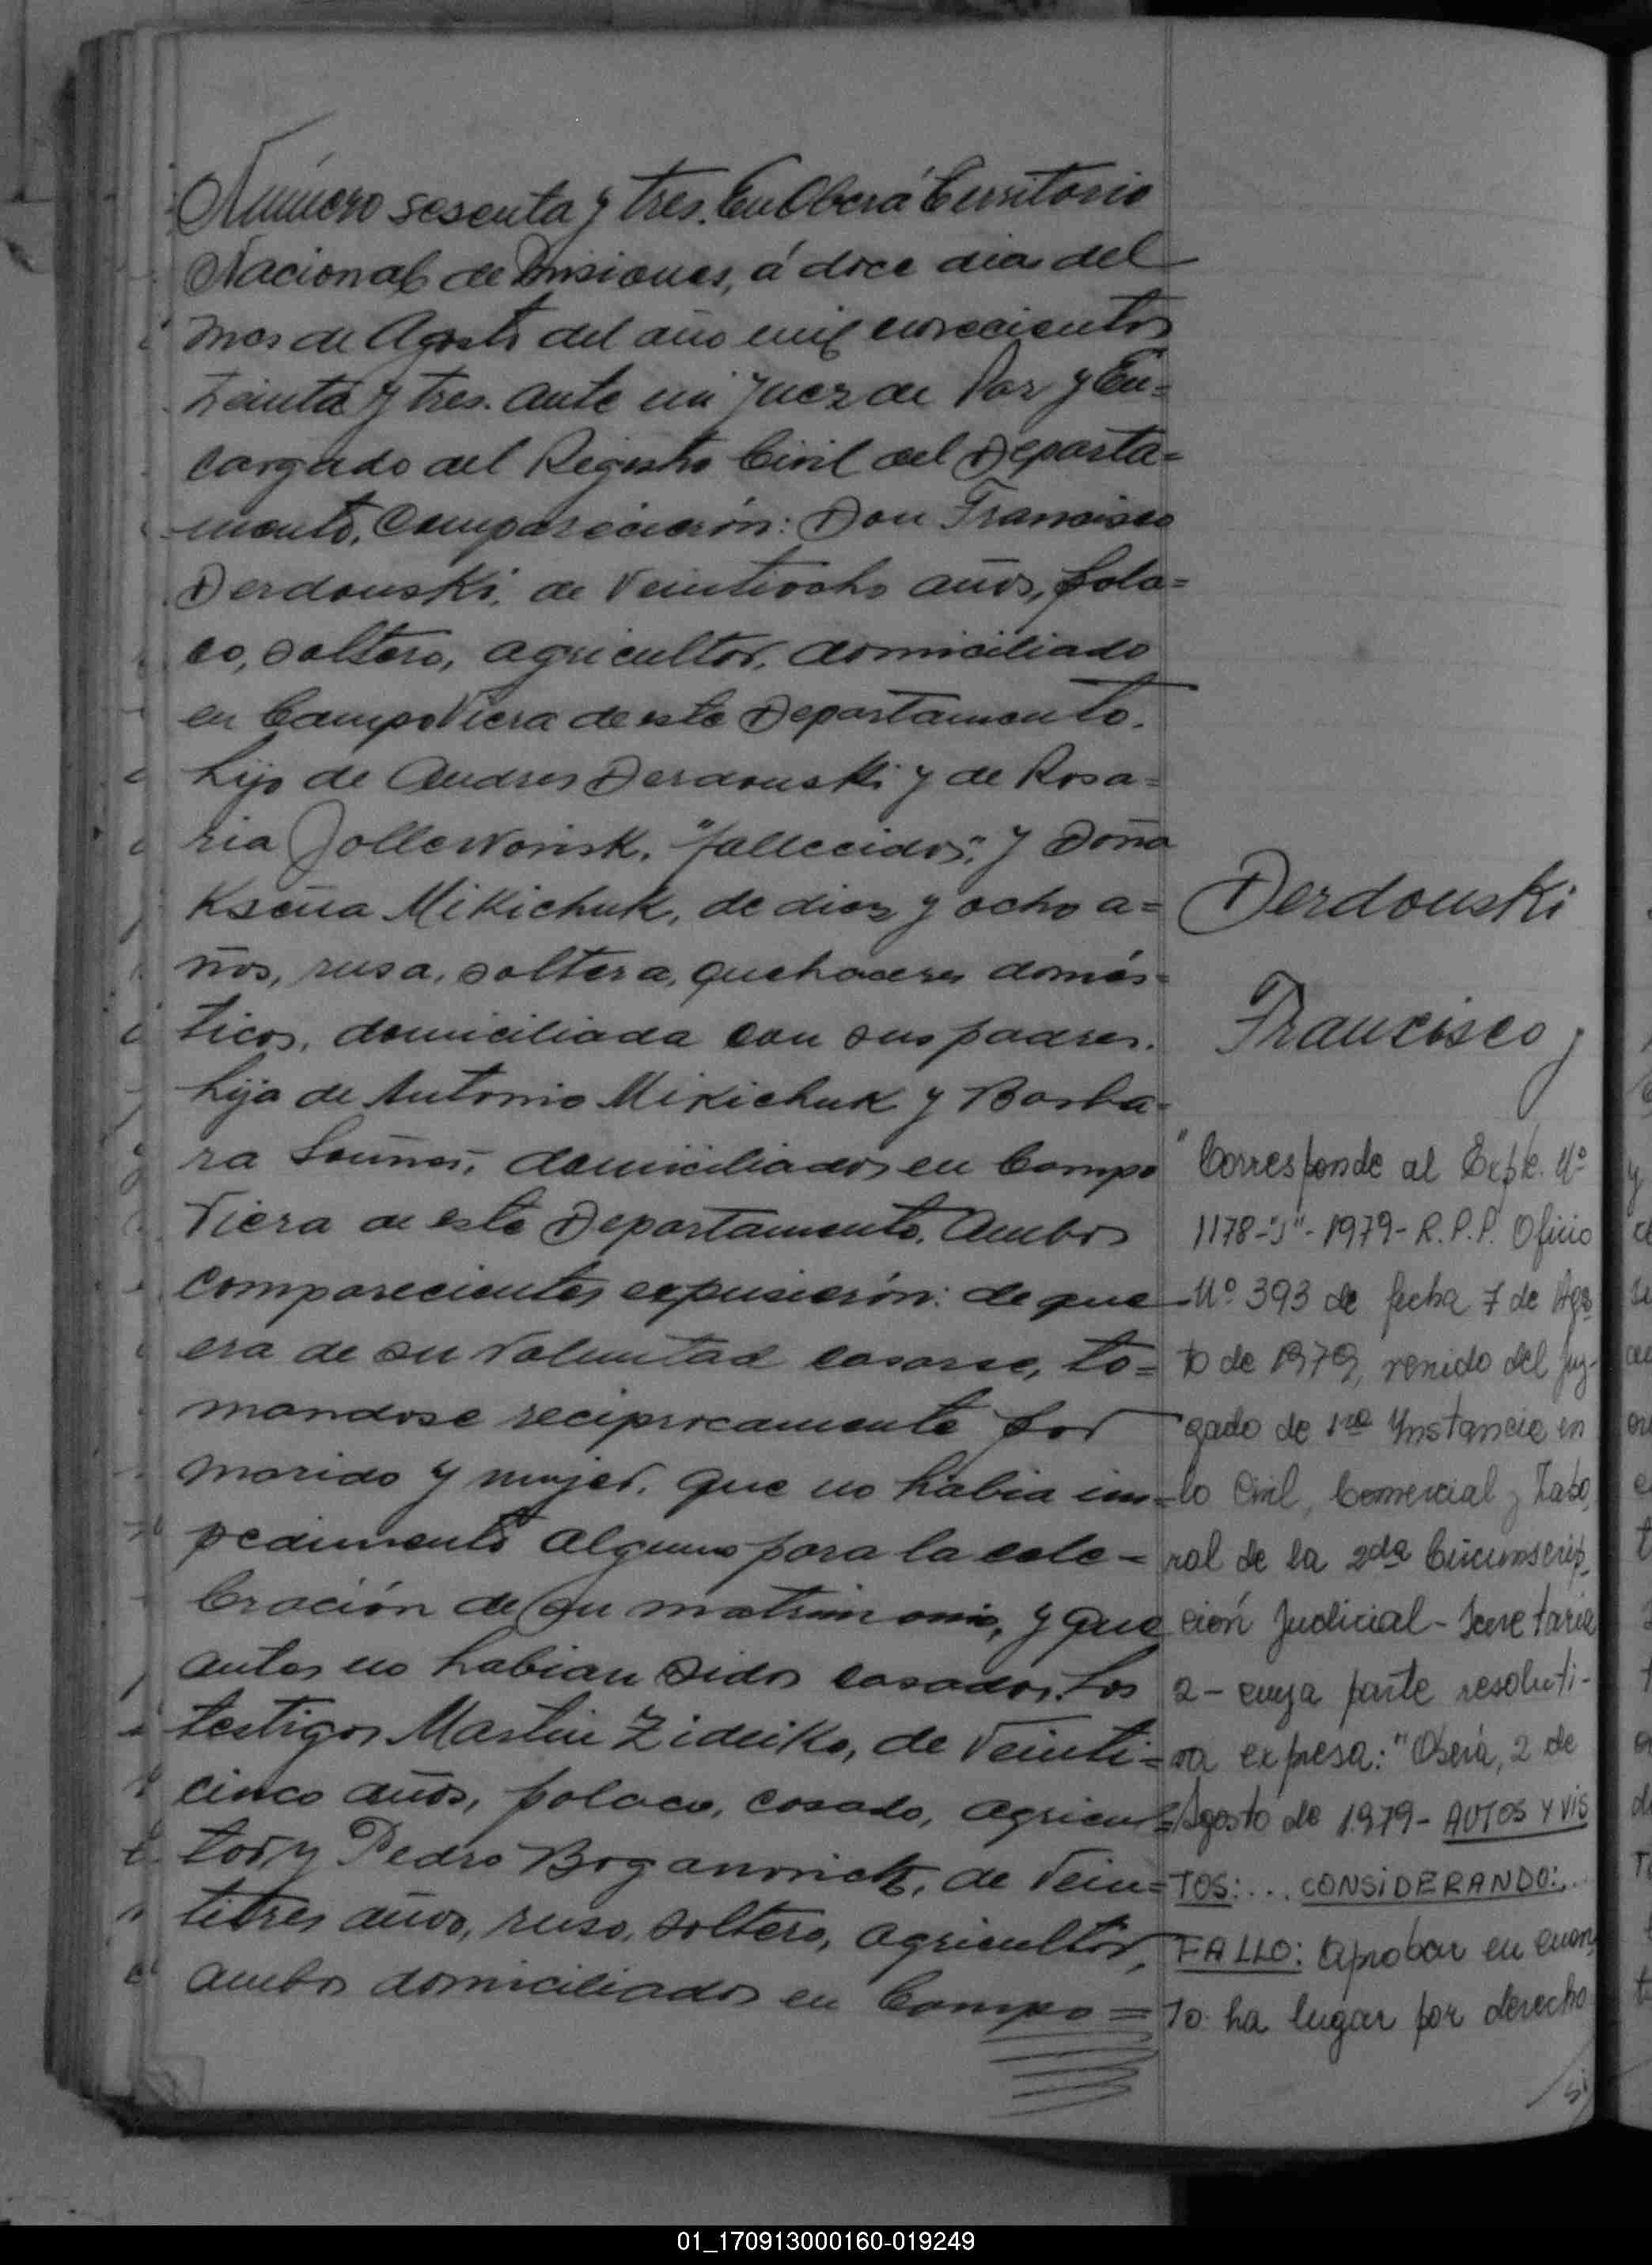 Número sesenta y tres. En Oberá Territorio
Nacional de Misiones, á doce dias del
mes de Agosto del año mil novecientos
treinta y tres. ante mi Juez de Paz y En=
cargado del Registro Civil del Departa=
mento, Comparecieron: Don Francisco
Derdouski, de Veintiocho años, pola=
co, soltero, agricultor, domiciliado
en Campo Viera de este Departamento.
hijo de Andres Derdouski y de Rosa=
ria "fallecidos", y Doña
Ksenia Mikichuk, de diez y ocho a=
ños, rusa, soltera, quehaceres domés=
ticos, domiciliada con sus padres.
hija de Antonio Mikichuk y Barba-
ra domiciliados en Campo
Viera de este Departamento. Ambos
comparecientes expusieron: de que
era de su voluntad casarse, to=
mandose reciprocamente por
marido y mujer, que no habia im=
pedimento alguno para la cele-
bración de su matrimonio, y que
antes no habian sidos casados. Los
testigos Martin de Veinti=
cinco años, polaco, casado, agricul=
tor, y Pedro de Vein=
titres años, ruso, soltero, agricultor,
ambos domiciliados en Campo =
Derdouski
Francisco y
"Corresponde al Expte. Nº
1178-"J"-1979- R.P.P. Oficio
Nº 393 de fecha 7 de Agos
to de 1979, venido del Juz-
gado de 1ra Instancia en
lo Civil, Comercial y Labo
ral de la 2da Circunscrip
ción Judicial - Secretaria
2 - cuya parte resoluti-
va expresa: "Oberá, 2 de
Agosto de 1979 - AUTOS Y VIS
TOS: ... CONSIDERANDO: ..
FALLO: Aprobar en cuan
to ha lugar por derecho
01_170913000160-019249